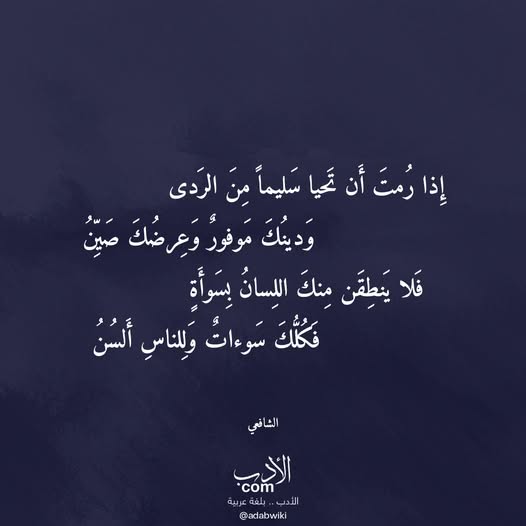 إِذا رُمتَ أَن تَحيا سَليماً مِنَ الرَدى
وَدينُكَ مَوفورٌ وَعِرضُكَ صَيِّنُ
فَلا يَنطِقَن مِنكَ اللِسانُ بِسَوأَةٍ
فَكُلُّكَ سَوءاتٌ وَلِلناسِ أَلسُنُ
الشافعي
الأدب
.com
الأدب .. بلغة عربية
@adabwiki